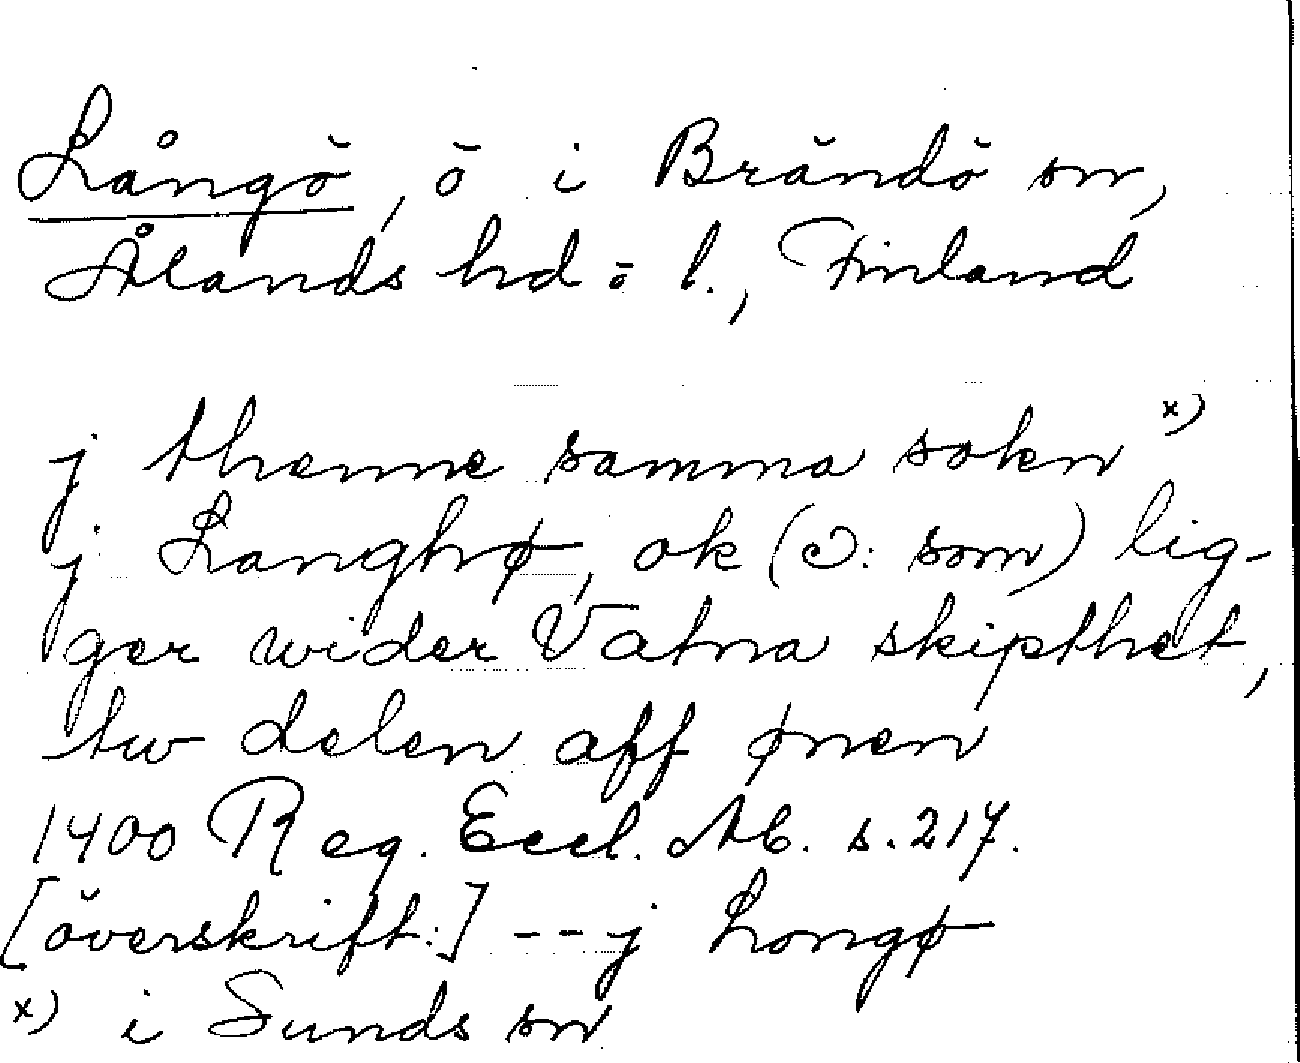 Långö, ö i Brändö sn,
Ålands hd o l., Finland
j thenne samma sokn x)
j Langhø, ok (ɔ: som) lig-
ger wider Vatna skipthet,
tw delen aff ønen
1400 Reg. Eccl. Ab. s. 217.
[överskrift:] -- j Longø
x) i Sunds sn